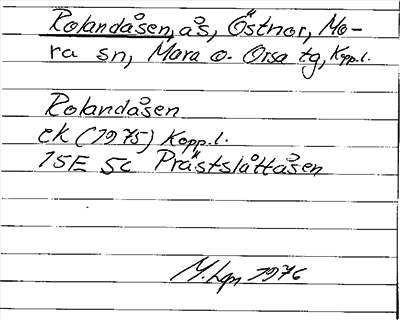 Rolandåsen, ås, Östnor, Mo-
ra sn, Mora o. Orsa tg, Kopp.l.
Rolandåsen
ek (1975) Kopp.l.
15E 5c Prästslåttåsen
M. Lgn 1976